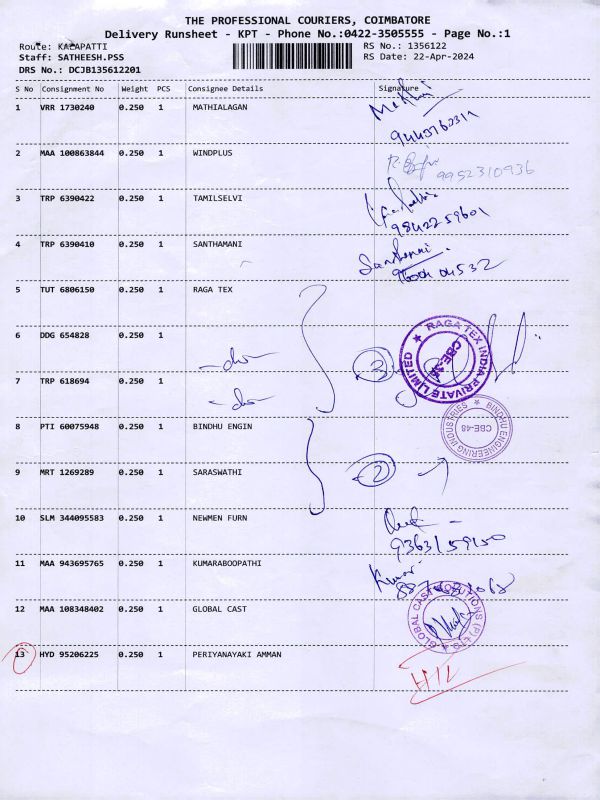 THE PROFESSIONAL COURIERS, COIMBATORE
Delivery Runsheet - KPT - Phone No.:0422-3505555 - Page No.:1
Route: KALAPATTI
RS No.: 1356122
Staff: SATHEESH.PSS
RS Date: 22-Apr-2024
DRS No.: DCJB135612201
S No Consignment No Weight PCS Consignee Details Signature
1 VRR 1730240 0.250 1 MATHIALAGAN
2 MAA 100863844 0.250 1 WINDPLUS
9952310936
3 TRP 6390422 0.250 1 TAMILSELVI
9842259601
4 TRP 6390410 0.250 1 SANTHAMANI
5 TUT 6806150 0.250 1 RAGA TEX
6 DDG 654828 0.250 1
-do-
3
RAGA TEX INDIA PRIVATE LIMITED
7 TRP 618694 0.250 1
-do-
8 PTI 60075948 0.250 1 BINDHU ENGIN
BINDHU ENGINEERING INDUSTRIES
CBE-48
9 MRT 1269289 0.250 1 SARASWATHI
2
10 SLM 344095583 0.250 1 NEWMEN FURN
9363159150
11 MAA 943695765 0.250 1 KUMARABOOPATHI
Kumar
12 MAA 108348402 0.250 1 GLOBAL CAST
GLOBAL CAST SOLUTIONS (P) LTD
13 HYD 95206225 0.250 1 PERIYANAYAKI AMMAN